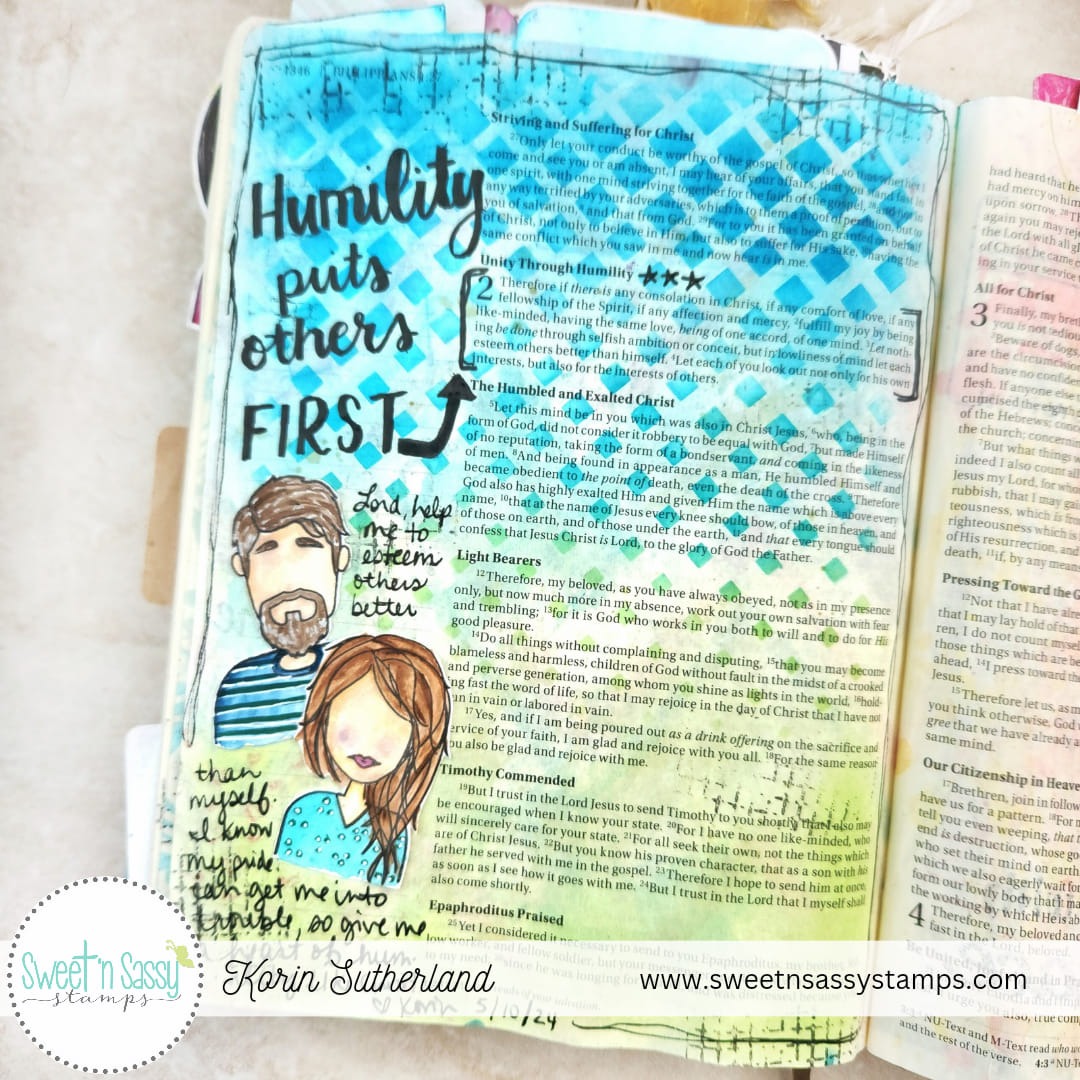 1346 PHILIPPIANS 1:27
Humility
puts
others
FIRST
Lord, help
me to
esteem
others
better
than
myself.
I know
my pride
can get me into
trouble, so give me
a heart of hum
♡ Korin 5/10/24
Striving and Suffering for Christ
27Only let your conduct be worthy of the gospel of Christ, so that whether I
come and see you or am absent, I may hear of your affairs, that you stand fast in
one spirit, with one mind striving together for the faith of the gospel, 28and not in
any way terrified by your adversaries, which is to them a proof of perdition, but to
you of salvation, and that from God. 29For to you it has been granted on behalf
of Christ, not only to believe in Him, but also to suffer for His sake, 30having the
same conflict which you saw in me and now hear is in me.
Unity Through Humility ★★★
2 Therefore if there is any consolation in Christ, if any comfort of love, if any
fellowship of the Spirit, if any affection and mercy, 2fulfill my joy by being
like-minded, having the same love, being of one accord, of one mind. 3Let noth-
ing be done through selfish ambition or conceit, but in lowliness of mind let each
esteem others better than himself. 4Let each of you look out not only for his own
interests, but also for the interests of others.
The Humbled and Exalted Christ
5Let this mind be in you which was also in Christ Jesus, 6who, being in the
form of God, did not consider it robbery to be equal with God, 7but made Himself
of no reputation, taking the form of a bondservant, and coming in the likeness
of men. 8And being found in appearance as a man, He humbled Himself and
became obedient to the point of death, even the death of the cross. 9Therefore
God also has highly exalted Him and given Him the name which is above every
name, 10that at the name of Jesus every knee should bow, of those in heaven, and
of those on earth, and of those under the earth, 11and that every tongue should
confess that Jesus Christ is Lord, to the glory of God the Father.
Light Bearers
12Therefore, my beloved, as you have always obeyed, not as in my presence
only, but now much more in my absence, work out your own salvation with fear
and trembling; 13for it is God who works in you both to will and to do for His
good pleasure.
14Do all things without complaining and disputing, 15that you may become
blameless and harmless, children of God without fault in the midst of a crooked
and perverse generation, among whom you shine as lights in the world, 16hold-
ing fast the word of life, so that I may rejoice in the day of Christ that I have not
run in vain or labored in vain.
17Yes, and if I am being poured out as a drink offering on the sacrifice and
service of your faith, I am glad and rejoice with you all. 18For the same reason
you also be glad and rejoice with me.
Timothy Commended
19But I trust in the Lord Jesus to send Timothy to you shortly, that I also may
be encouraged when I know your state. 20For I have no one like-minded, who
will sincerely care for your state. 21For all seek their own, not the things which
are of Christ Jesus. 22But you know his proven character, that as a son with his
father he served with me in the gospel. 23Therefore I hope to send him at once,
as soon as I see how it goes with me. 24But I trust in the Lord that I myself shall
also come shortly.
Epaphroditus Praised
25Yet I considered it necessary to send to you Epaphroditus,
low worker, and fellow soldier, but your
to my need; since he was longing for
was distressed because
had heard that he
had mercy on him
upon sorrow.
again you may rej
the Lord with all gl
of Christ he came c
ing in your service
All for Christ
3 Finally, my bret
you is not tedious
2Beware of dogs,
are the circumcision
and have no confid
flesh. If anyone else
cumcised the eighth
of the Hebrews; conce
the church; concernin
7But what things w
indeed I also count all
Jesus my Lord, for who
rubbish, that I may gain
teousness, which is from
righteousness which is
of His resurrection, and
death, 11if, by any means
Pressing Toward the G
12Not that I have alre
that I may lay hold of that
ren, I do not count myself
those things which are be
ahead, 14I press toward the
Jesus.
15Therefore let us, as m
you think otherwise, God
gree that we have already a
same mind.
Our Citizenship in Heave
17Brethren, join in follow
have us for a pattern. 18For m
tell you even weeping, that
end is destruction, whose go
who set their mind on earth
which we also eagerly wait for
form our lowly body that it ma
the working by which He is ab
4 Therefore, my beloved and
fast in the Lord, beloved.
Be United,
urge you also, true comp
NU-Text and M-Text read who wo
and the rest of the verse. 4:3 NU-Te
Sweet 'n Sassy
stamps
Korin Sutherland
www.sweetnsassystamps.com